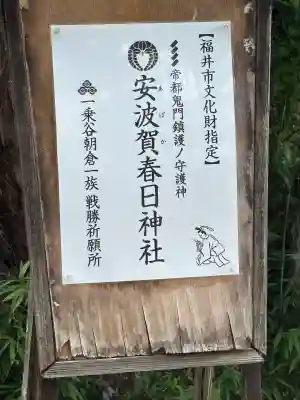 【福井市文化財指定】
帝都鬼門鎮護ノ守護神
安波賀春日神社
あばか
一乗谷朝倉一族 戦勝祈願所